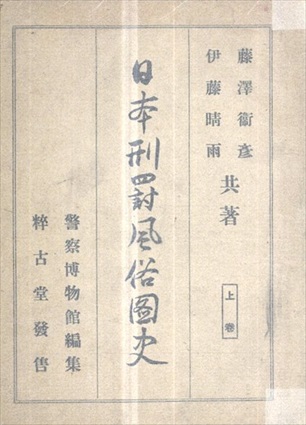 藤澤衞彦
伊藤晴雨
共著
上卷
日本刑罰風俗圖史
警察博物館編集
粹古堂發售